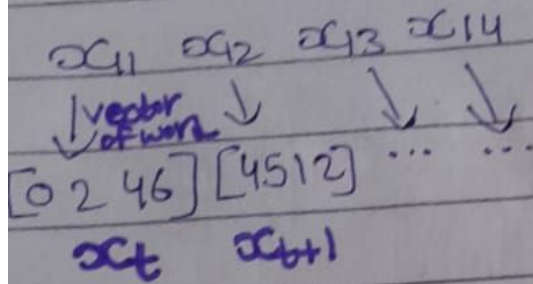 x11 x12 x13 x14
vector
of word
[0 2 46] [4512] ... ...
xt xt+1